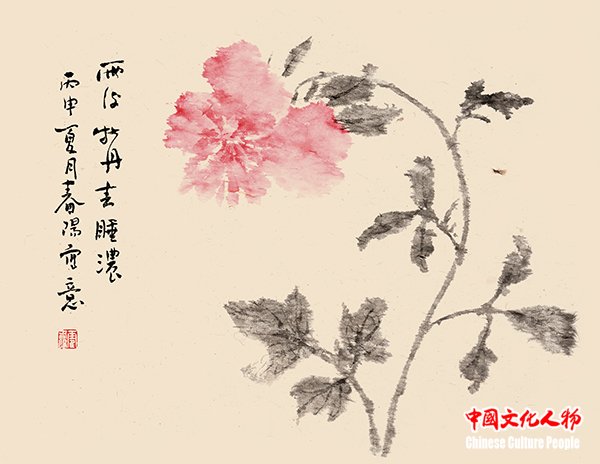 雨後牡丹春睡濃
丙申夏月春陽寫意
中國文化人物
Chinese Culture People